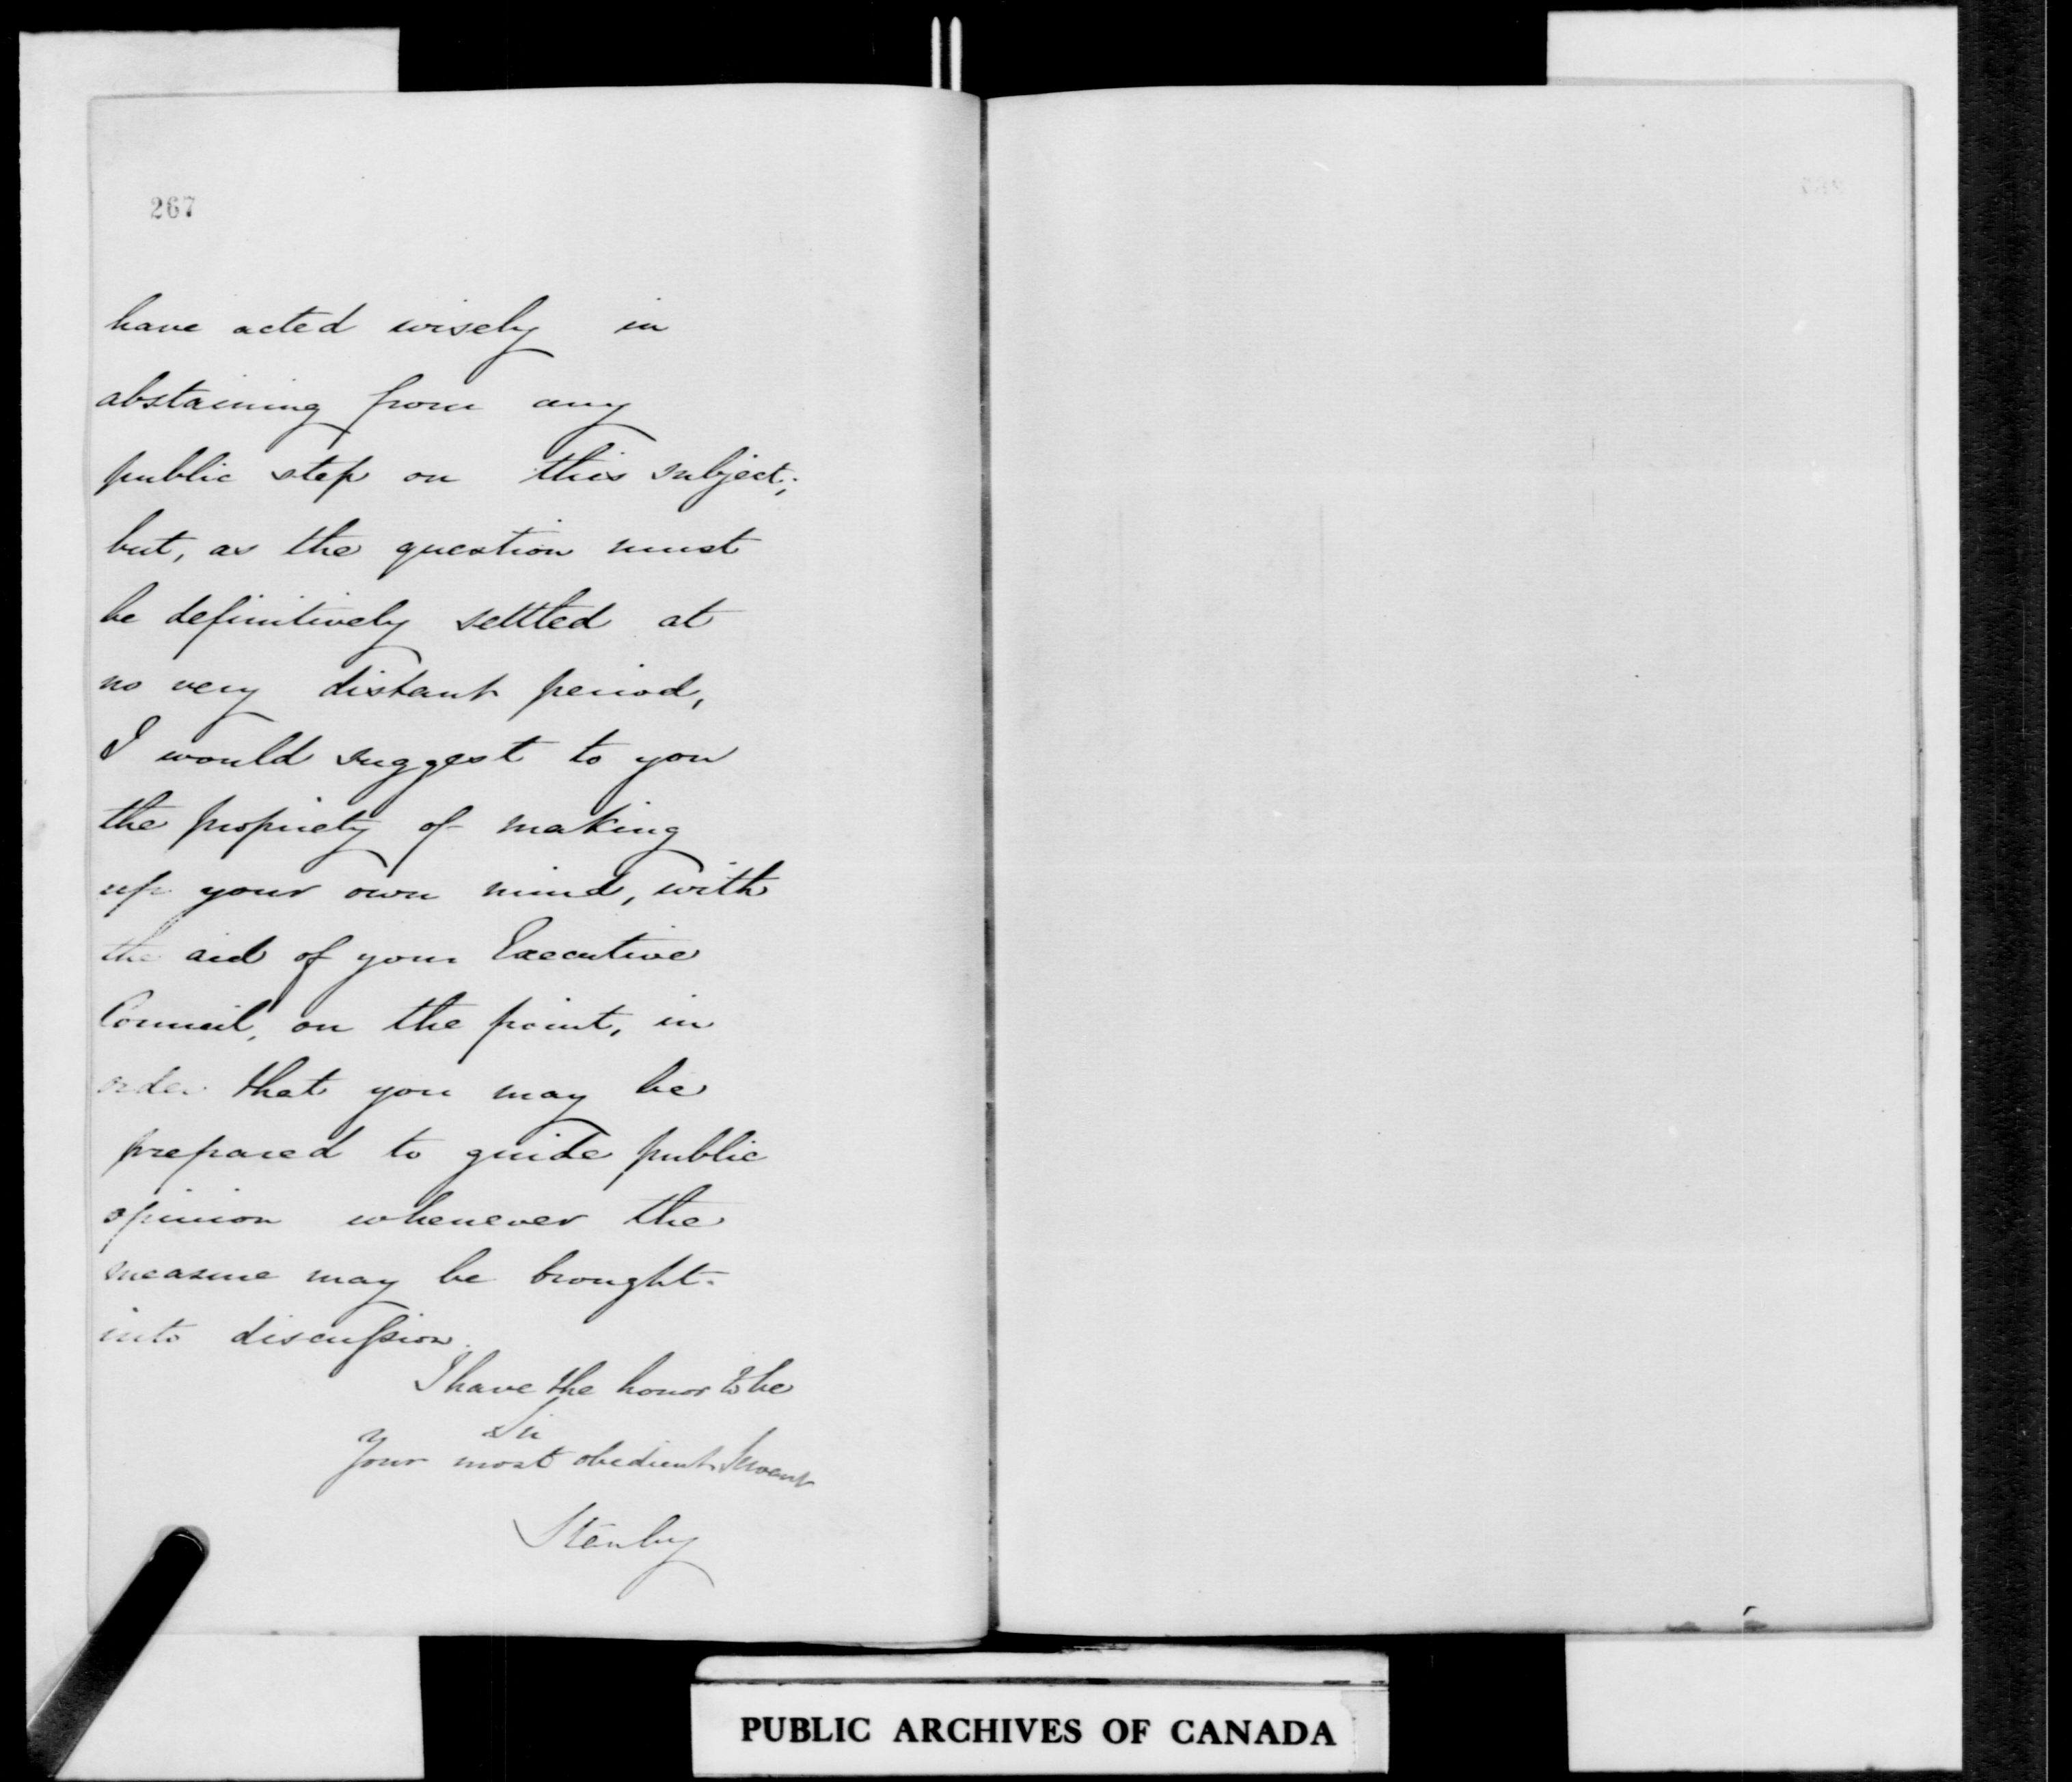 267
have acted wisely in
abstaining from any
public step on this subject;
but, as the question must
be definitively settled at
no very distant period,
I would suggest to you
the propriety of making
up your own mind, with
the aid of your Executive
Council, on the point, in
order that you may be
prepared to guide public
opinion whenever the
measure may be brought
into discussion.
I have the honor to be
Sir
Your most obedient Servant
Stanley
PUBLIC ARCHIVES OF CANADA